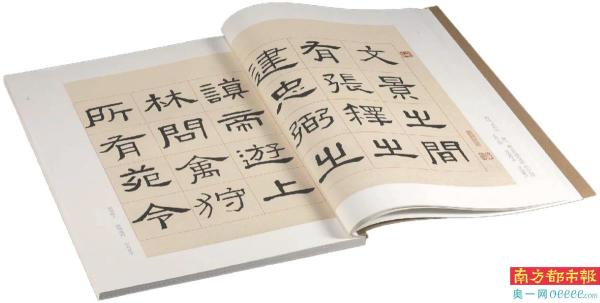 文景之間
有張釋之
建忠弼之
謨帝遊上
林問禽狩
所有苑令
南方都市報
奥一网oeeee.com